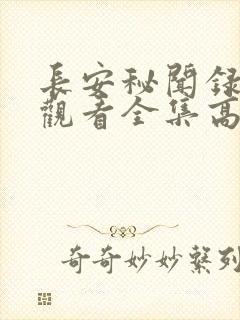 長安秘聞録
觀看全集高
奇奇妙妙繫列